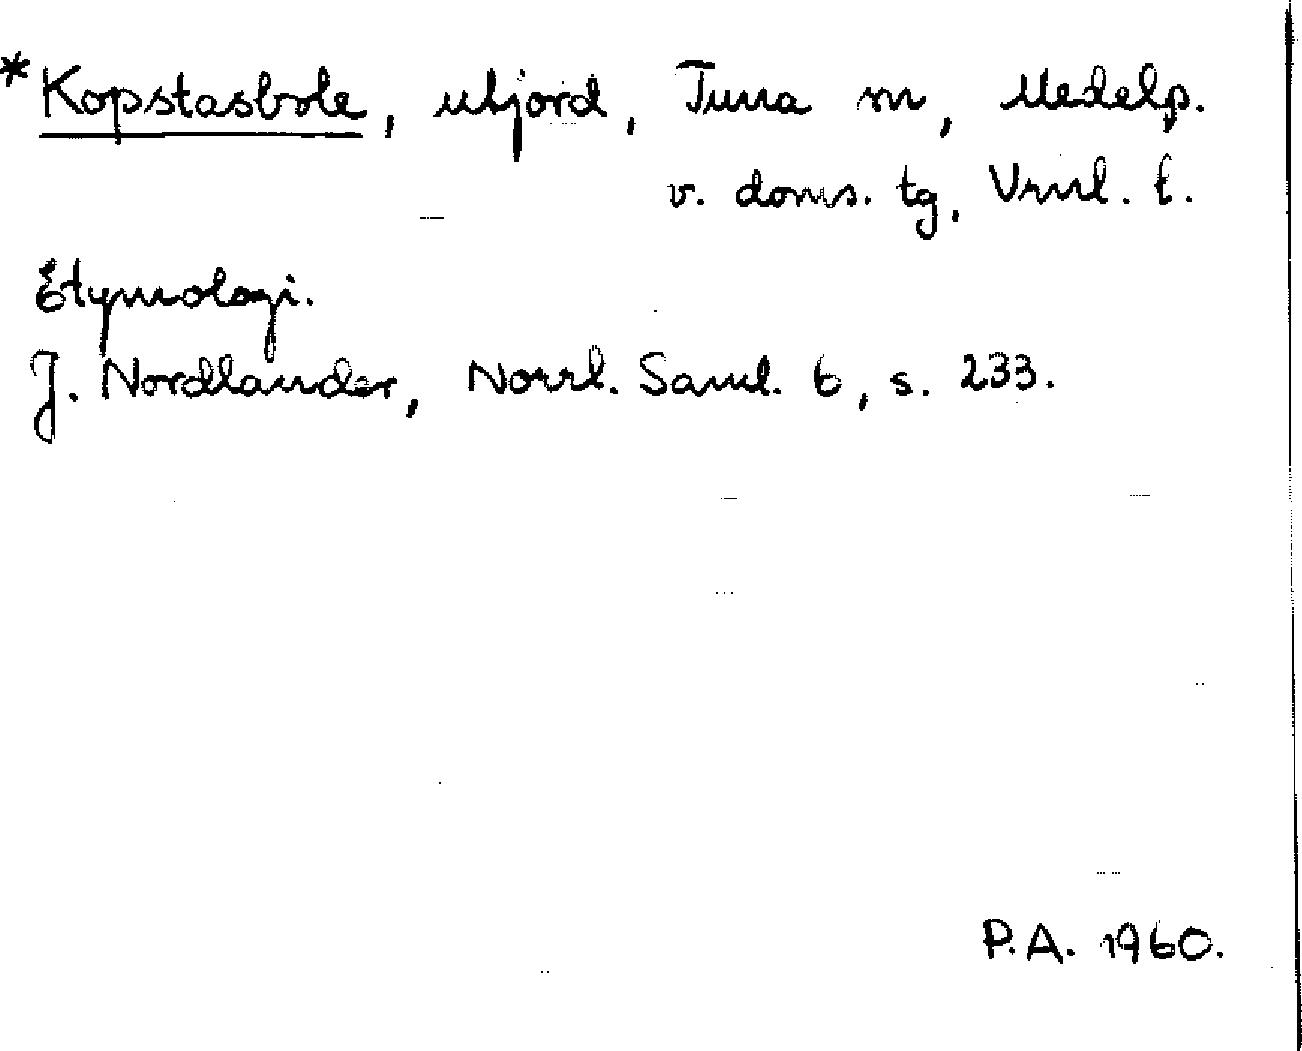 *Kopstasbole, utjord, Tuna sn, Medelp.
v. doms. tg, Vrnl. l.
Etymologi.
J. Nordlander, Norrl. Saml. 6, s. 233.
P.A. 1960.